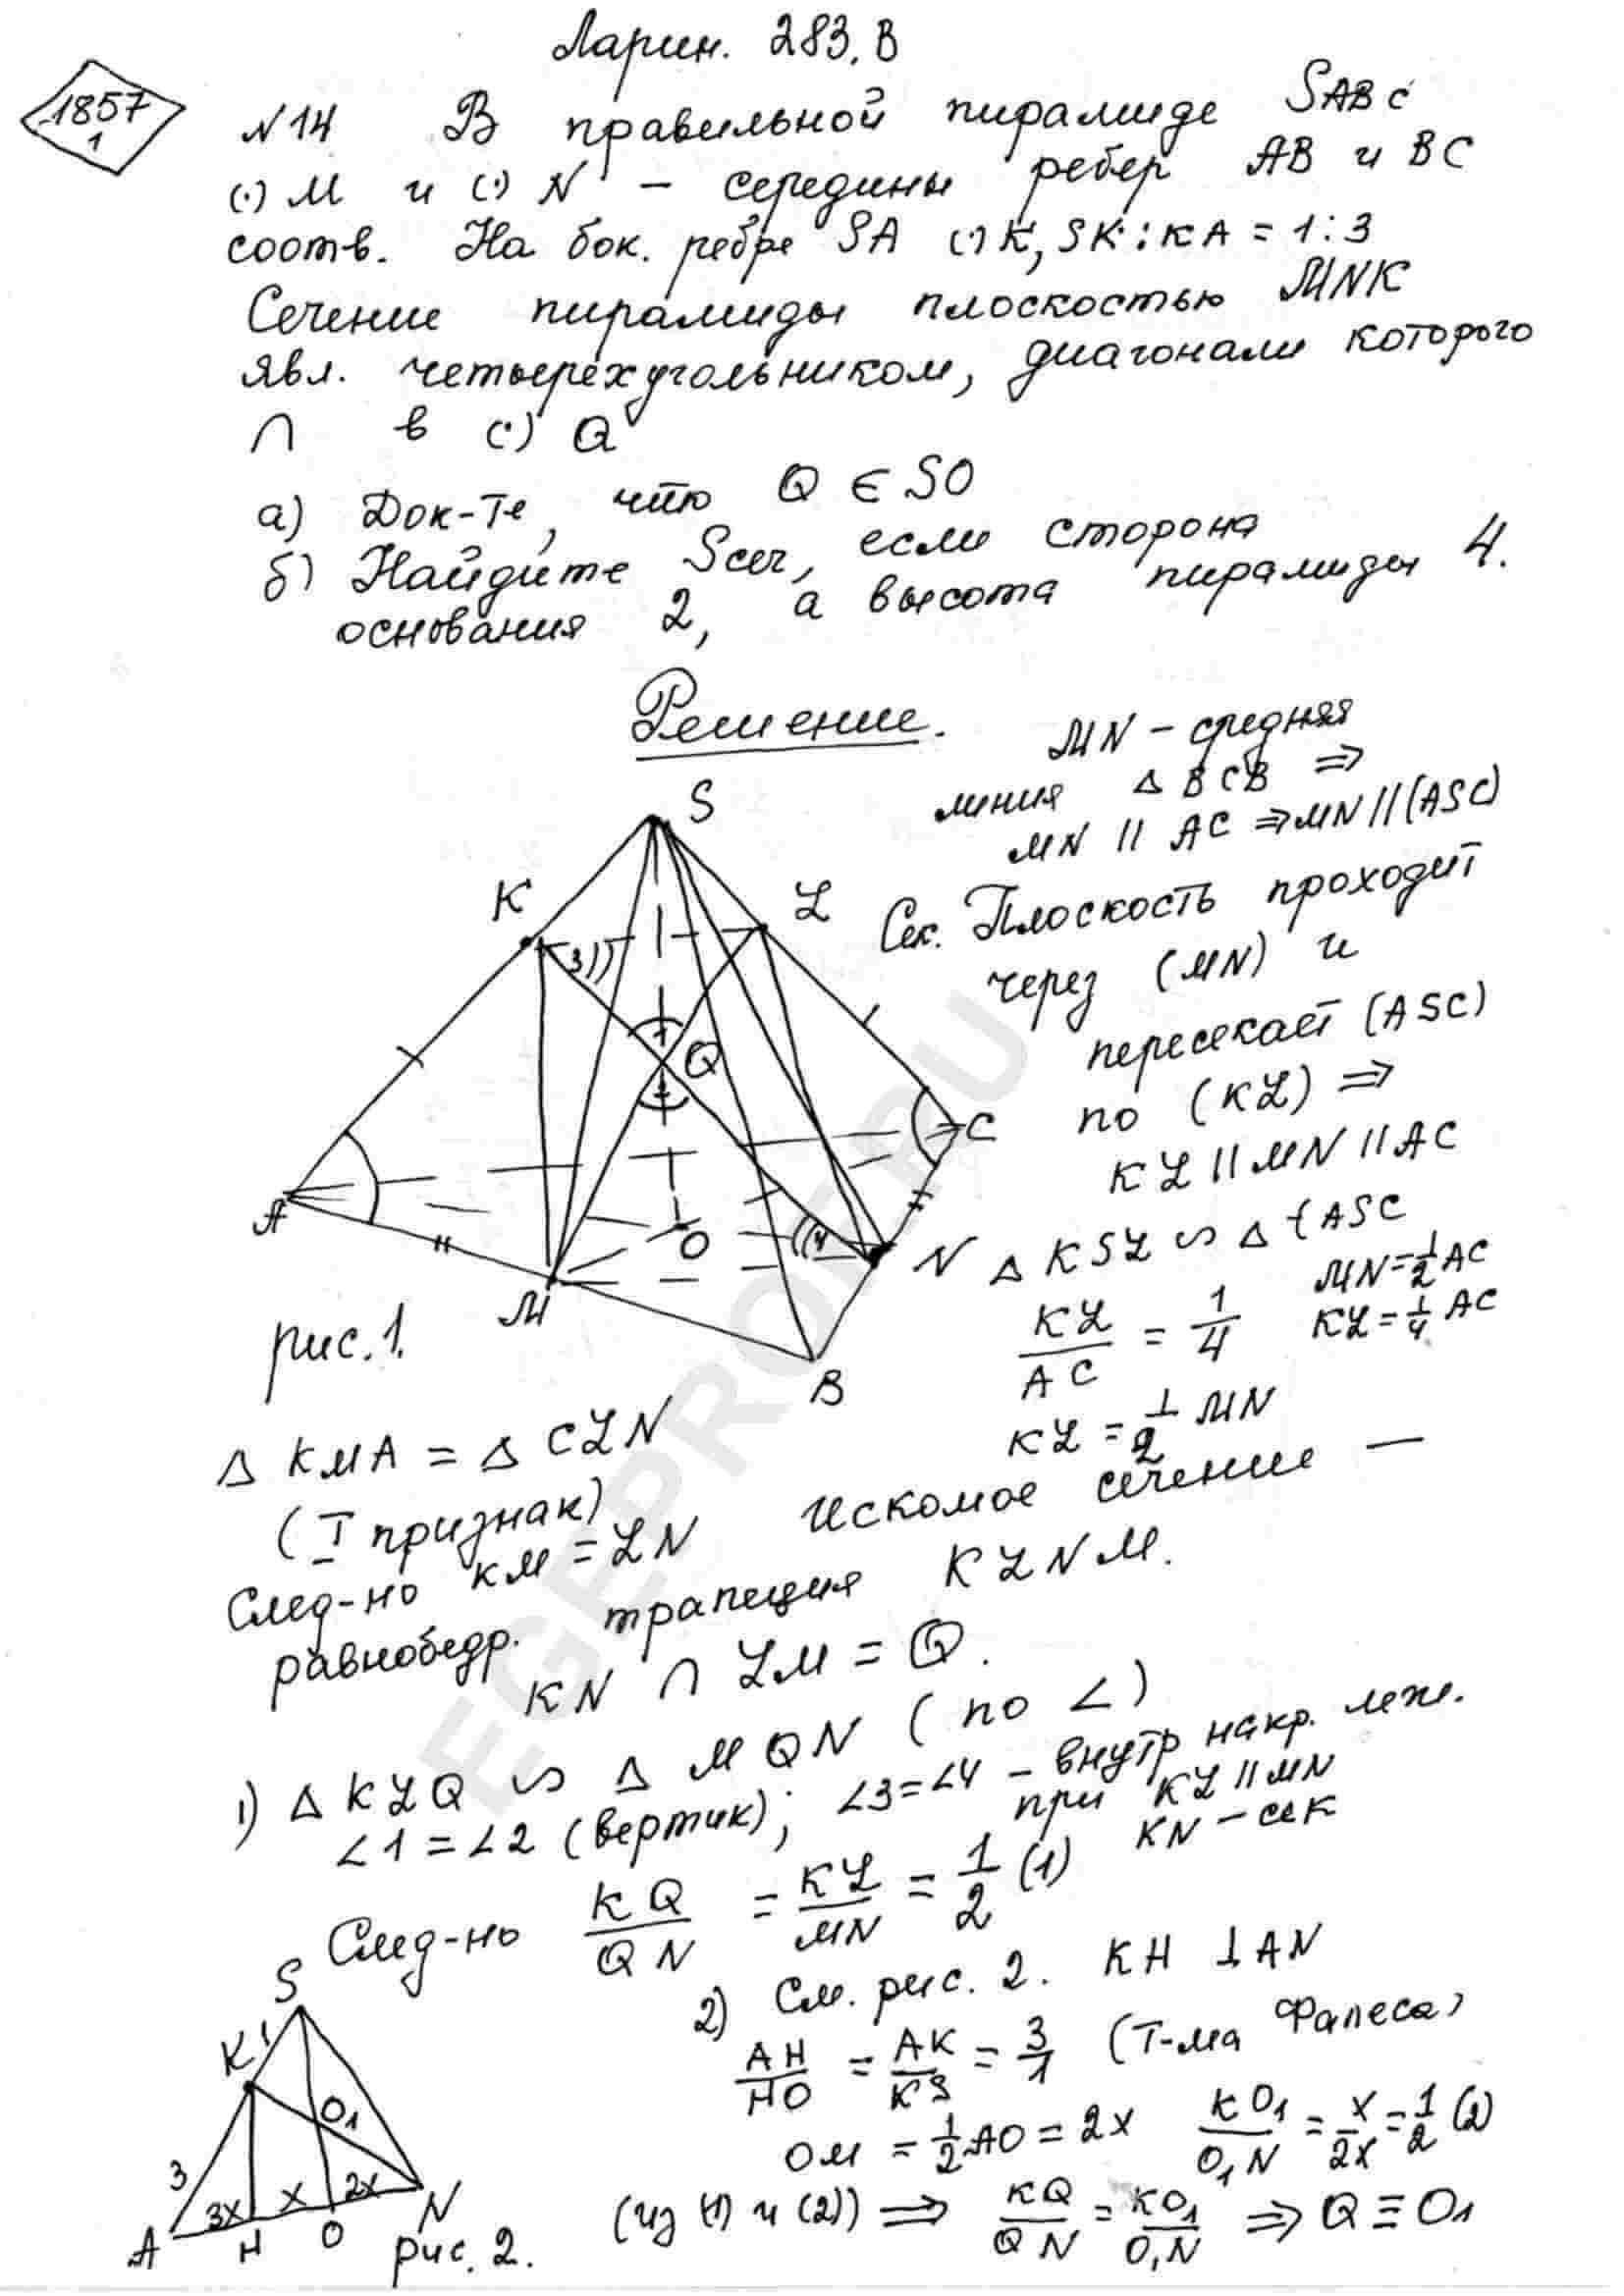 Ларин. 283. В
1857
1
N14 В правильной пирамиде SABC
(·) M и (·) N – середины ребер AB и BC
соотв. На бок. ребре SA (·) K, SK : KA = 1 : 3
Сечение пирамиды плоскостью MNK
явл. четырехугольником, диагонали которого
∩ в (·) Q
а) Док-те, что Q ∈ SO
б) Найдите Sсеч, если сторона
основания 2, а высота пирамиды 4.
Решение.
MN – средняя
линия △ BCB ⇒
MN || AC ⇒ MN || (ASC)
Сек. Плоскость проходит
через (MN) и
пересекает (ASC)
по (KL) ⇒
KL || MN || AC
△ KSL ∽ △ ASC
KL/AC = 1/4
MN = 1/2 AC
KL = 1/4 AC
KL = 1/2 MN
S
K
L
3
1
Q
2
A
C
O
4
N
M
B
рис. 1.
△ KMA = △ CLN
(I признак)
След-но KM = LN Искомое сечение –
равнобедр. трапеция KLNM.
KN ∩ LM = Q.
1) △ KLQ ∽ △ MQN (по ∠)
∠1 = ∠2 (вертик); ∠3 = ∠4 – внутр накр. леж.
при KL || MN
KN – сек
След-но KQ/QN = KL/MN = 1/2 (1)
2) См. рис. 2. KH ⊥ AN
AH/HO = AK/KS = 3/1 (Т-ма Фалеса)
OM = 1/2 AO = 2x KO₁/O₁N = x/2x = 1/2 (2)
(из (1) и (2)) ⇒ KQ/QN = KO₁/O₁N ⇒ Q ≡ O₁
S
K
1
O₁
3
3x
x
2x
A
H
O
N
рис. 2.
EGEPRO.RU